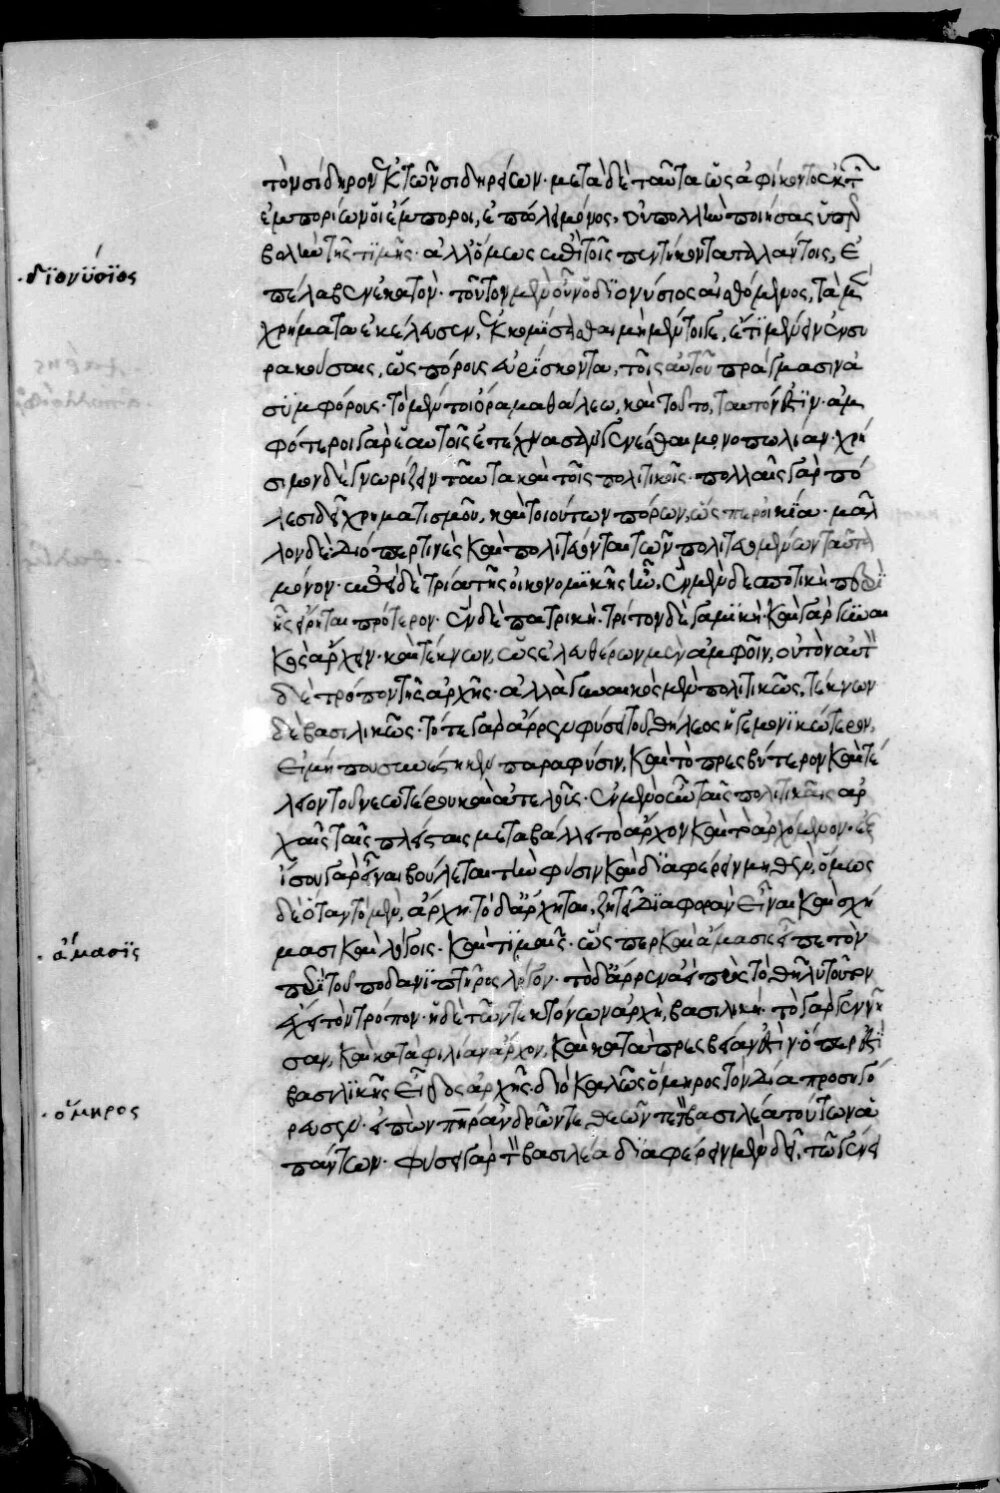 τὸν σίδηρον ἐκ τῶν σιδηρείων· μετὰ δὲ ταῦτα ὡς ἀφίκοντο ἐκ τῶν
ἐμπορίων οἱ ἔμποροι, ἐπώλει μόνος, οὐ πολλὴν ποιήσας ὑπερ
βολὴν τῆς τιμῆς· ἀλλ' ὅμως ἐπὶ τοῖς πεντήκοντα ταλάντοις, ἐ
·διονύσιος
πέλαβεν ἑκατόν· τοῦτον μὲν οὖν ὁ διονύσιος αἰσθόμενος, τὰ μὲν
χρήματα ἐκέλευσεν, ἐκκομίσασθαι μὴ μέντοι γε, ἔτι μένειν ἐν συ
ρακούσαις, ὡς πόρους εὑρίσκοντα, τοῖς αὐτοῦ πράγμασιν ἀ
συμφόρους· τὸ μέντοι ὅραμα θάλεω, καὶ τοῦτο, ταὐτόν ἐστιν· ἀμ
φότεροι γὰρ ἑαυτοῖς ἐτέχνασαν γενέσθαι μονοπωλίαν· χρή
σιμον δὲ γνωρίζειν ταῦτα καὶ τοῖς πολιτικοῖς· πολλαῖς γὰρ πό
λεσι δεῖ χρηματισμοῦ, καὶ τοιούτων πόρων, ὥσπερ οἰκία· μᾶλ
λον δέ· διόπερ τινὲς καὶ πολιτεύονται τῶν πολιτευομένων ταῦτα
μόνον· ἐπεὶ δὲ τρία τῆς οἰκονομικῆς ἦν, ἓν μὲν δεσποτικὴ περὶ
ἧς εἴρηται πρότερον· ἓν δὲ πατρική· τρίτον δὲ γαμική· καὶ γὰρ γυναι
κὸς ἄρχειν· καὶ τέκνων, ὡς ἐλευθέρων μὲν ἀμφοῖν, οὐ τὸν αὐτὸν
δὲ τρόπον τῆς ἀρχῆς· ἀλλὰ γυναικὸς μὲν πολιτικῶς, τέκνων
δὲ βασιλικῶς· τό τε γὰρ ἄρρεν φύσει τοῦ θήλεος ἡγεμονικώτερον,
εἰ μή που συνέστηκε παρὰ φύσιν, καὶ τὸ πρεσβύτερον καὶ τέ
λειον τοῦ νεωτέρου καὶ ἀτελοῦς· ἐν μὲν οὖν ταῖς πολιτικαῖς ἀρ
χαῖς ταῖς πλείσταις μεταβάλλει τὸ ἄρχον καὶ τὸ ἀρχόμενον· ἐξ
ἴσου γὰρ εἶναι βούλεται τὴν φύσιν καὶ διαφέρειν μηθέν, ὅμως
δὲ ὅταν τὸ μὲν, ἄρχῃ· τὸ δ' ἄρχηται, ζητεῖ διαφορὰν εἶναι καὶ σχή
·ἄμασις
μασι καὶ λόγοις· καὶ τιμαῖς· ὥσπερ καὶ ἄμασις εἶπε τὸν
περὶ τοῦ ποδανιπτῆρος λόγον· τὸ δ' ἄρρεν ἀεὶ πρὸς τὸ θῆλυ τοῦτον
ἔχει τὸν τρόπον· ἡ δὲ τῶν τέκνων ἀρχὴ, βασιλική· τὸ γὰρ γεννῆ
σαν, καὶ κατὰ φιλίαν ἄρχον, καὶ κατὰ πρεσβείαν ἐστίν· ὅπερ ἐστὶ
βασιλικῆς εἶδος ἀρχῆς· διὸ καλῶς ὅμηρος τὸν δία προσηγό
·ὅμηρος
ρευσεν· εἰπὼν πατὴρ ἀνδρῶν τε θεῶν τε τὸν βασιλέα τούτων ἁ
πάντων· φύσει γὰρ τὸν βασιλέα διαφέρειν μὲν δεῖ, τῷ γένει